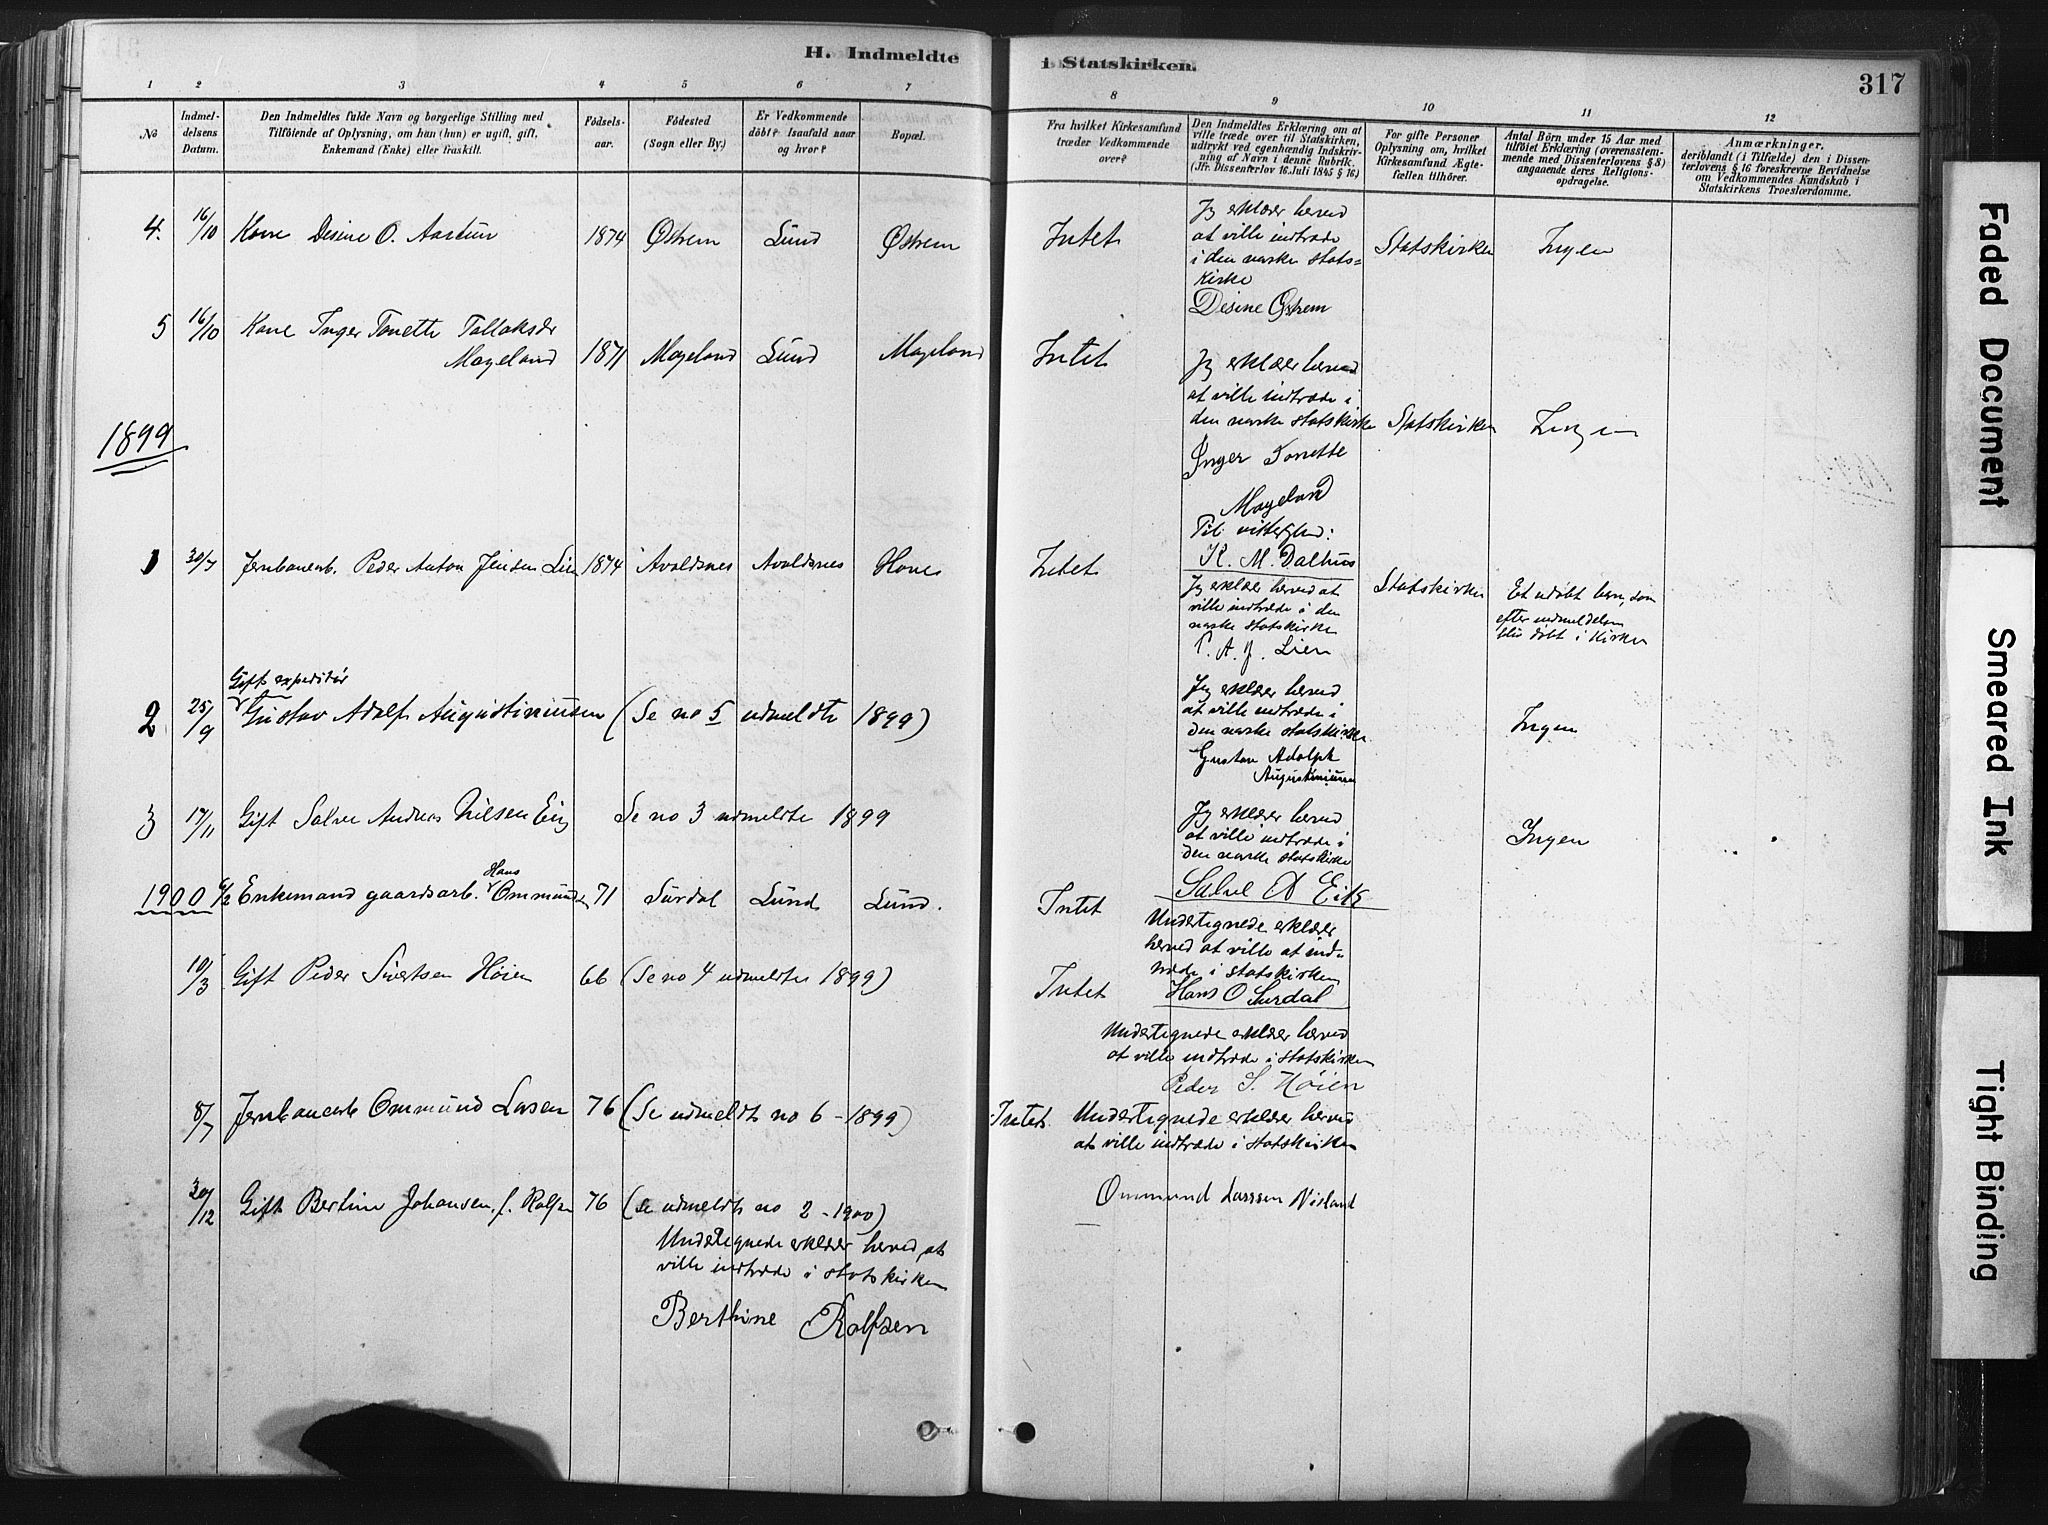 H. Indmeldte i Statskirken. 317
1 2 3 4 5 6 7 8 9 10 11 12
No
Indmel-
delsens
Datum.
Den Indmeldtes fulde Navn og borgerlige Stilling med
Tilföiende af Oplysning, om han (hun) er ugift, gift,
Enkemand (Enke) eller fraskilt.
Födsels-
aar.
Födested
(Sogn eller By.)
Er Vedkommende
döbt? Isaafald naar
og hvor?
Bopæl.
Fra hvilket Kirkesamfund
træder Vedkommende
over?
Den Indmeldtes Erklæring om at
ville træde over til Statskirken,
udtrykt ved egenhændig Indskriv-
ning af Navn i denne Rubrik.
(Jfr. Dissenterlov 16. Juli 1845 § 16)
For gifte Personer
Oplysning om, hvilket
Kirkesamfund Ægte-
fællen tilhörer.
Antal Börn under 15 Aar med
tilföiet Erklæring (overensstem-
mende med Dissenterlovens § 8)
angaaende deres Religions-
opdragelse.
Anmærkninger,
deriblandt (i Tilfælde) den i Dissen-
terlovens § 16 foreskrevne Bevidnelse
om Vedkommendes Kundskab i
Statskirkens Troeslærdomme.
4. 16/10 Kone Desine O. Aartun 1874 Østrem Lund Østrem Intet
Jeg erklærer herved
at ville indtræde
i den norske stats=
kirke
Desine Østrem
Statskirken Ingen
5 16/10 Kone Inger Tonette Tollaksdr
Mageland 1871 Mageland Lund Mageland Intet
Jeg erklærer herved
at ville indtræde i
den norske statskirke
Inger Tonette
Mageland
Til vitterlighed:
K. M. Dalhus
Statskirken Ingen
1899
1 30/7 Jernbanearb. Peder Anton Jensen Lien 1874 Avaldsnes Avaldsnes Hove Intet
Jeg erklærer herved at
ville indtræde i den
norske statskirke
P. A. J. Lien
Statskirken
Et udøbt barn, som
efter indmeldelsen
blir døbt i kirken
Gift expeditør
2 25/9 Gustav Adolf Augustiniussen (Se no 5 udmeldte 1899)
Jeg erklærer herved
at ville indtræde i
den norske statskirke
Gustav Adolph
Augustiniussen
Ingen
3 17/11 Gift Salve Andreas Nilsen Eig Se no 3 udmeldte 1899
Jeg erklærer herved
at ville indtræde i
den norske statskirke
Salve A Eik
Ingen
1900 6/2 Enkemand gaardsarb. Hans Ommundsen 71 Surdal Lund Lund. Intet
Undertegnede erklærer
herved at ville at ind-
træde i statskirken
Hans O Surdal
10/3 Gift Peder Sivertsen Høien 66 (Se no 4 udmeldte 1899) Intet
Undertegnede erklærer herved
at ville indtræde i statskirken
Peder S. Høien
8/7 Jernbanearb Ommund Lasen 76 (Se udmeldte no 6 - 1899) Intet.
Undertegnede erklærer herved
at ville indtræde i statskirken
Ommund Larssen
30/12 Gift Bertine Johansen, f. Rolfsen 76 (Se udmeldte no 2 - 1900)
Undertegnede erklærer herved, at
ville indtræde i statskirken
Berthine Rolfsen
Faded Document
Smeared Ink
Tight Binding